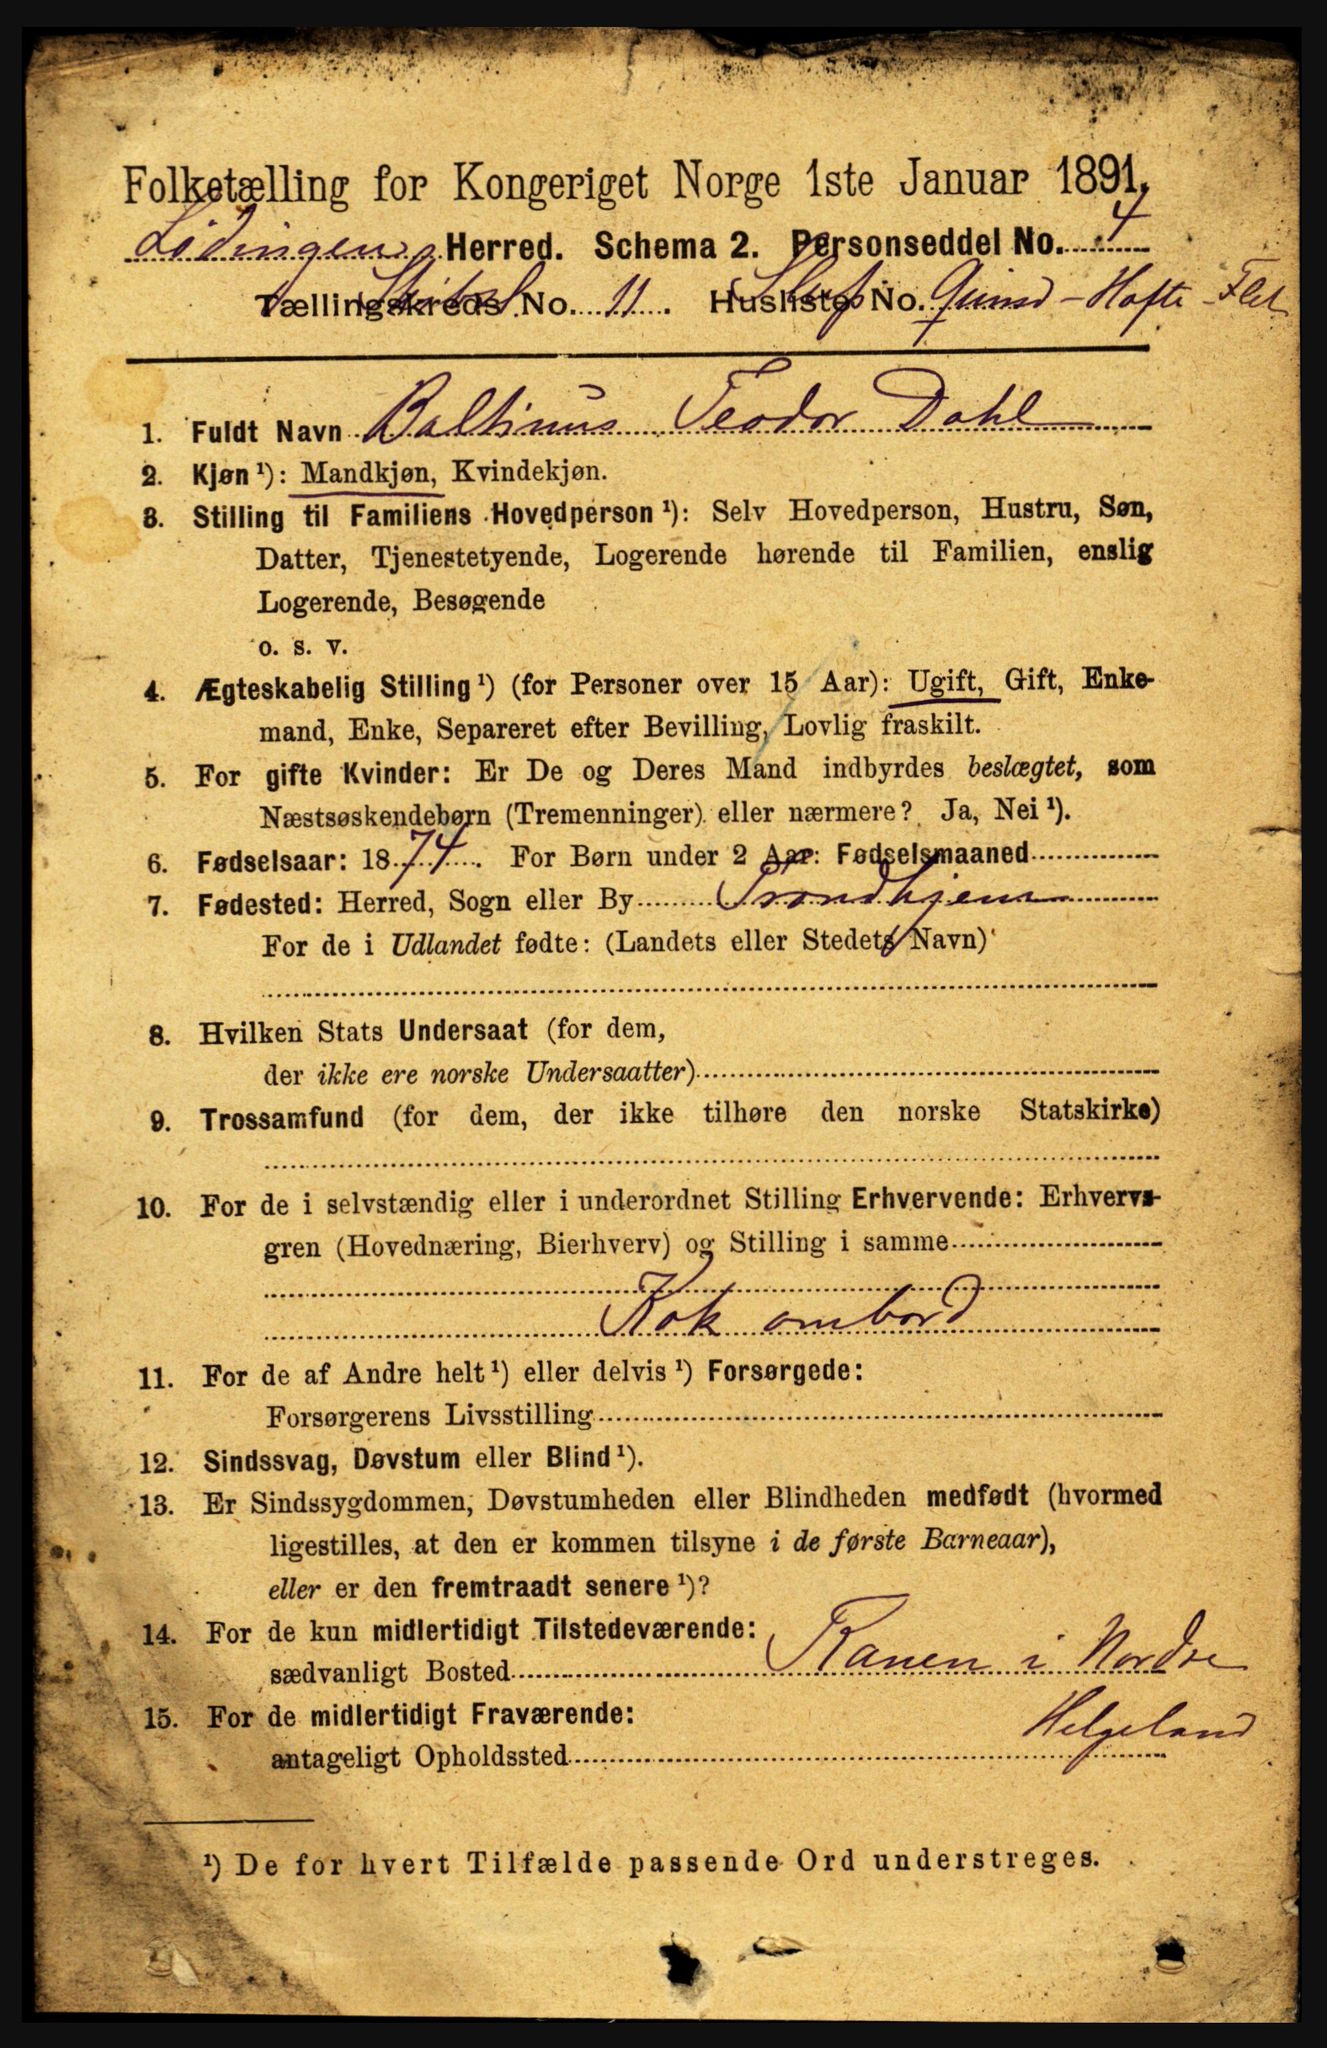 Folketælling for Kongeriget Norge 1ste Januar 1891.
Lødingens Herred. Schema 2. Personseddel No. 4
Tællingskreds No. 11. Husliste No.
1. Fuldt Navn Baltinus Teodor Dahl
2. Kjøn ¹): Mandkjøn, Kvindekjøn.
3. Stilling til Familiens Hovedperson ¹): Selv Hovedperson, Hustru, Søn,
Datter, Tjenestetyende, Logerende hørende til Familien, enslig
Logerende, Besøgende
o. s. v.
4. Ægteskabelig Stilling ¹) (for Personer over 15 Aar): Ugift, Gift, Enke-
mand, Enke, Separeret efter Bevilling, Lovlig fraskilt.
5. For gifte Kvinder: Er De og Deres Mand indbyrdes beslægtet, som
Næstsøskendebørn (Tremenninger) eller nærmere? Ja, Nei ¹).
6. Fødselsaar: 1874. For Børn under 2 Aar: Fødselsmaaned
7. Fødested: Herred, Sogn eller By Trondhjem
For de i Udlandet fødte: (Landets eller Stedets Navn)
8. Hvilken Stats Undersaat (for dem,
der ikke ere norske Undersaatter)
9. Trossamfund (for dem, der ikke tilhøre den norske Statskirke)
10. For de i selvstændig eller i underordnet Stilling Erhvervende: Erhvervs-
gren (Hovednæring, Bierhverv) og Stilling i samme
Kok ombord
11. For de af Andre helt ¹) eller delvis ¹) Forsørgede:
Forsørgerens Livsstilling
12. Sindssvag, Døvstum eller Blind ¹).
13. Er Sindssygdommen, Døvstumheden eller Blindheden medfødt (hvormed
ligestilles, at den er kommen tilsyne i de første Barneaar),
eller er den fremtraadt senere ¹)?
14. For de kun midlertidigt Tilstedeværende:
sædvanligt Bosted Ranen i Nordre
Helgeland
15. For de midlertidigt Fraværende:
antageligt Opholdssted
¹) De for hvert Tilfælde passende Ord understreges.